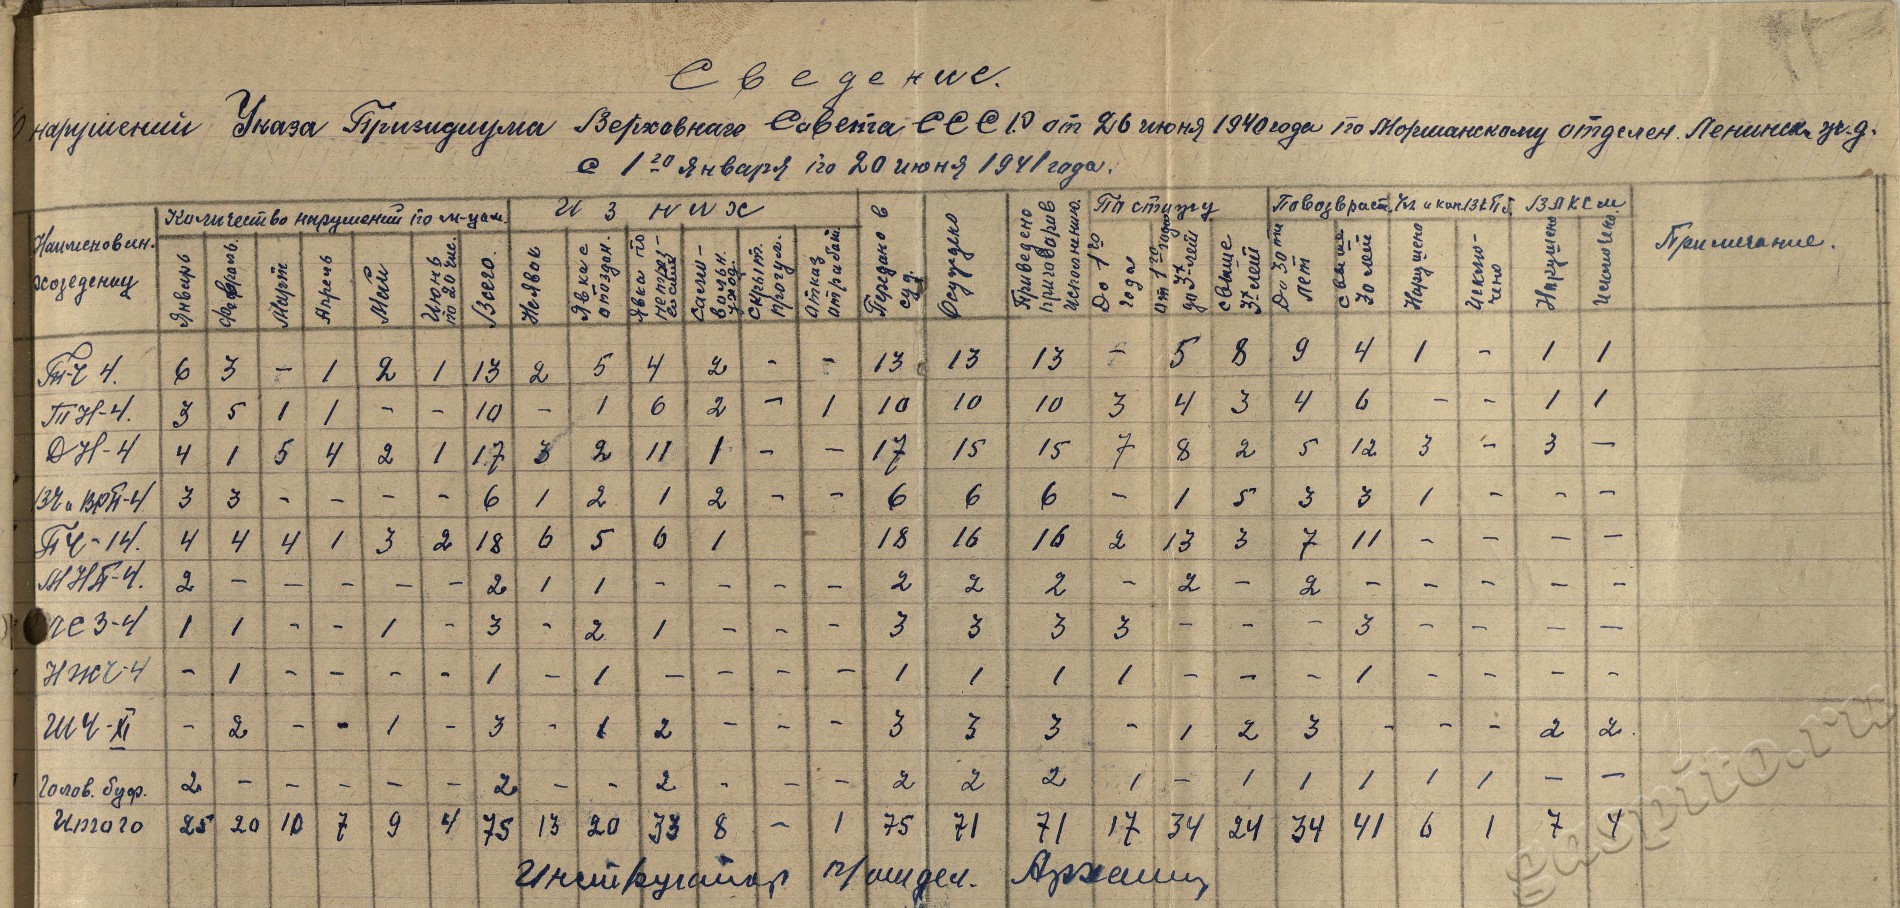 Сведение.
нарушений Указа Призидиума Верховнаго Совета СССР от 26 июня 1940 года по Моршанскому отделен. Ленинск. ж.д.
с 1го января по 20 июня 1941 года.
Наименован. хозединиц | Количество нарушений по м-цам. | Из них | Передано в суд. | Осуждено | Приведено приговаров исполнению. | По стажу | По возвраст. | Чл. и кан. ВКПб | ВЛКСМ | Примечание.
Январь | Февраль | Март | Апрель | Май | Июнь по 20 чис. | Всего. | Неявок | Явка с опоздан. | Явка в | Само-вольн. уход. | Скрыт. прогул. | Отказ отработ. | До 1го года | от 1го года до 3х лет | свыше 3х лет | До 30ти лет | Свыше 30 лет | Нарушено | Исклю-чено | Нарушено | Исключено
ТЧ 4. 6 3 - 1 2 1 13 2 5 4 2 - - 13 13 13 - 5 8 9 4 1 - 1 1
ТН-4. 3 5 1 1 - - 10 - 1 6 2 - 1 10 10 10 3 4 3 4 6 - - 1 1
ДН-4 4 1 5 4 2 1 17 3 2 11 1 - - 17 15 15 7 8 2 5 12 3 - 3 -
ВЧ и ВРП-4 3 3 - - - - 6 1 2 1 2 - - 6 6 6 - 1 5 3 3 1 - - -
ПЧ-14. 4 4 4 1 3 2 18 6 5 6 1 18 16 16 2 13 3 7 11 - - - -
МНП-4. 2 - - - - - 2 1 1 - - - - 2 2 2 - 2 - 2 - - - - -
ЧСЗ-4 1 1 - - 1 - 3 - 2 1 - - - 3 3 3 3 - - - 3 - - - -
НЖЧ-4 - 1 - - - - 1 - 1 - - - - 1 1 1 1 - - - 1 - - - -
ШЧ-XI - 2 - - 1 - 3 - 1 2 - - - 3 3 3 - 1 2 3 - - - 2 2.
Голов. буф. 2 - - - - - 2 - - 2 - - - 2 2 2 1 - 1 1 1 1 1 - -
Итого 25 20 10 7 9 4 75 13 20 33 8 - 1 75 71 71 17 34 24 34 41 6 1 7 4
Инструктор
gaspito.ru